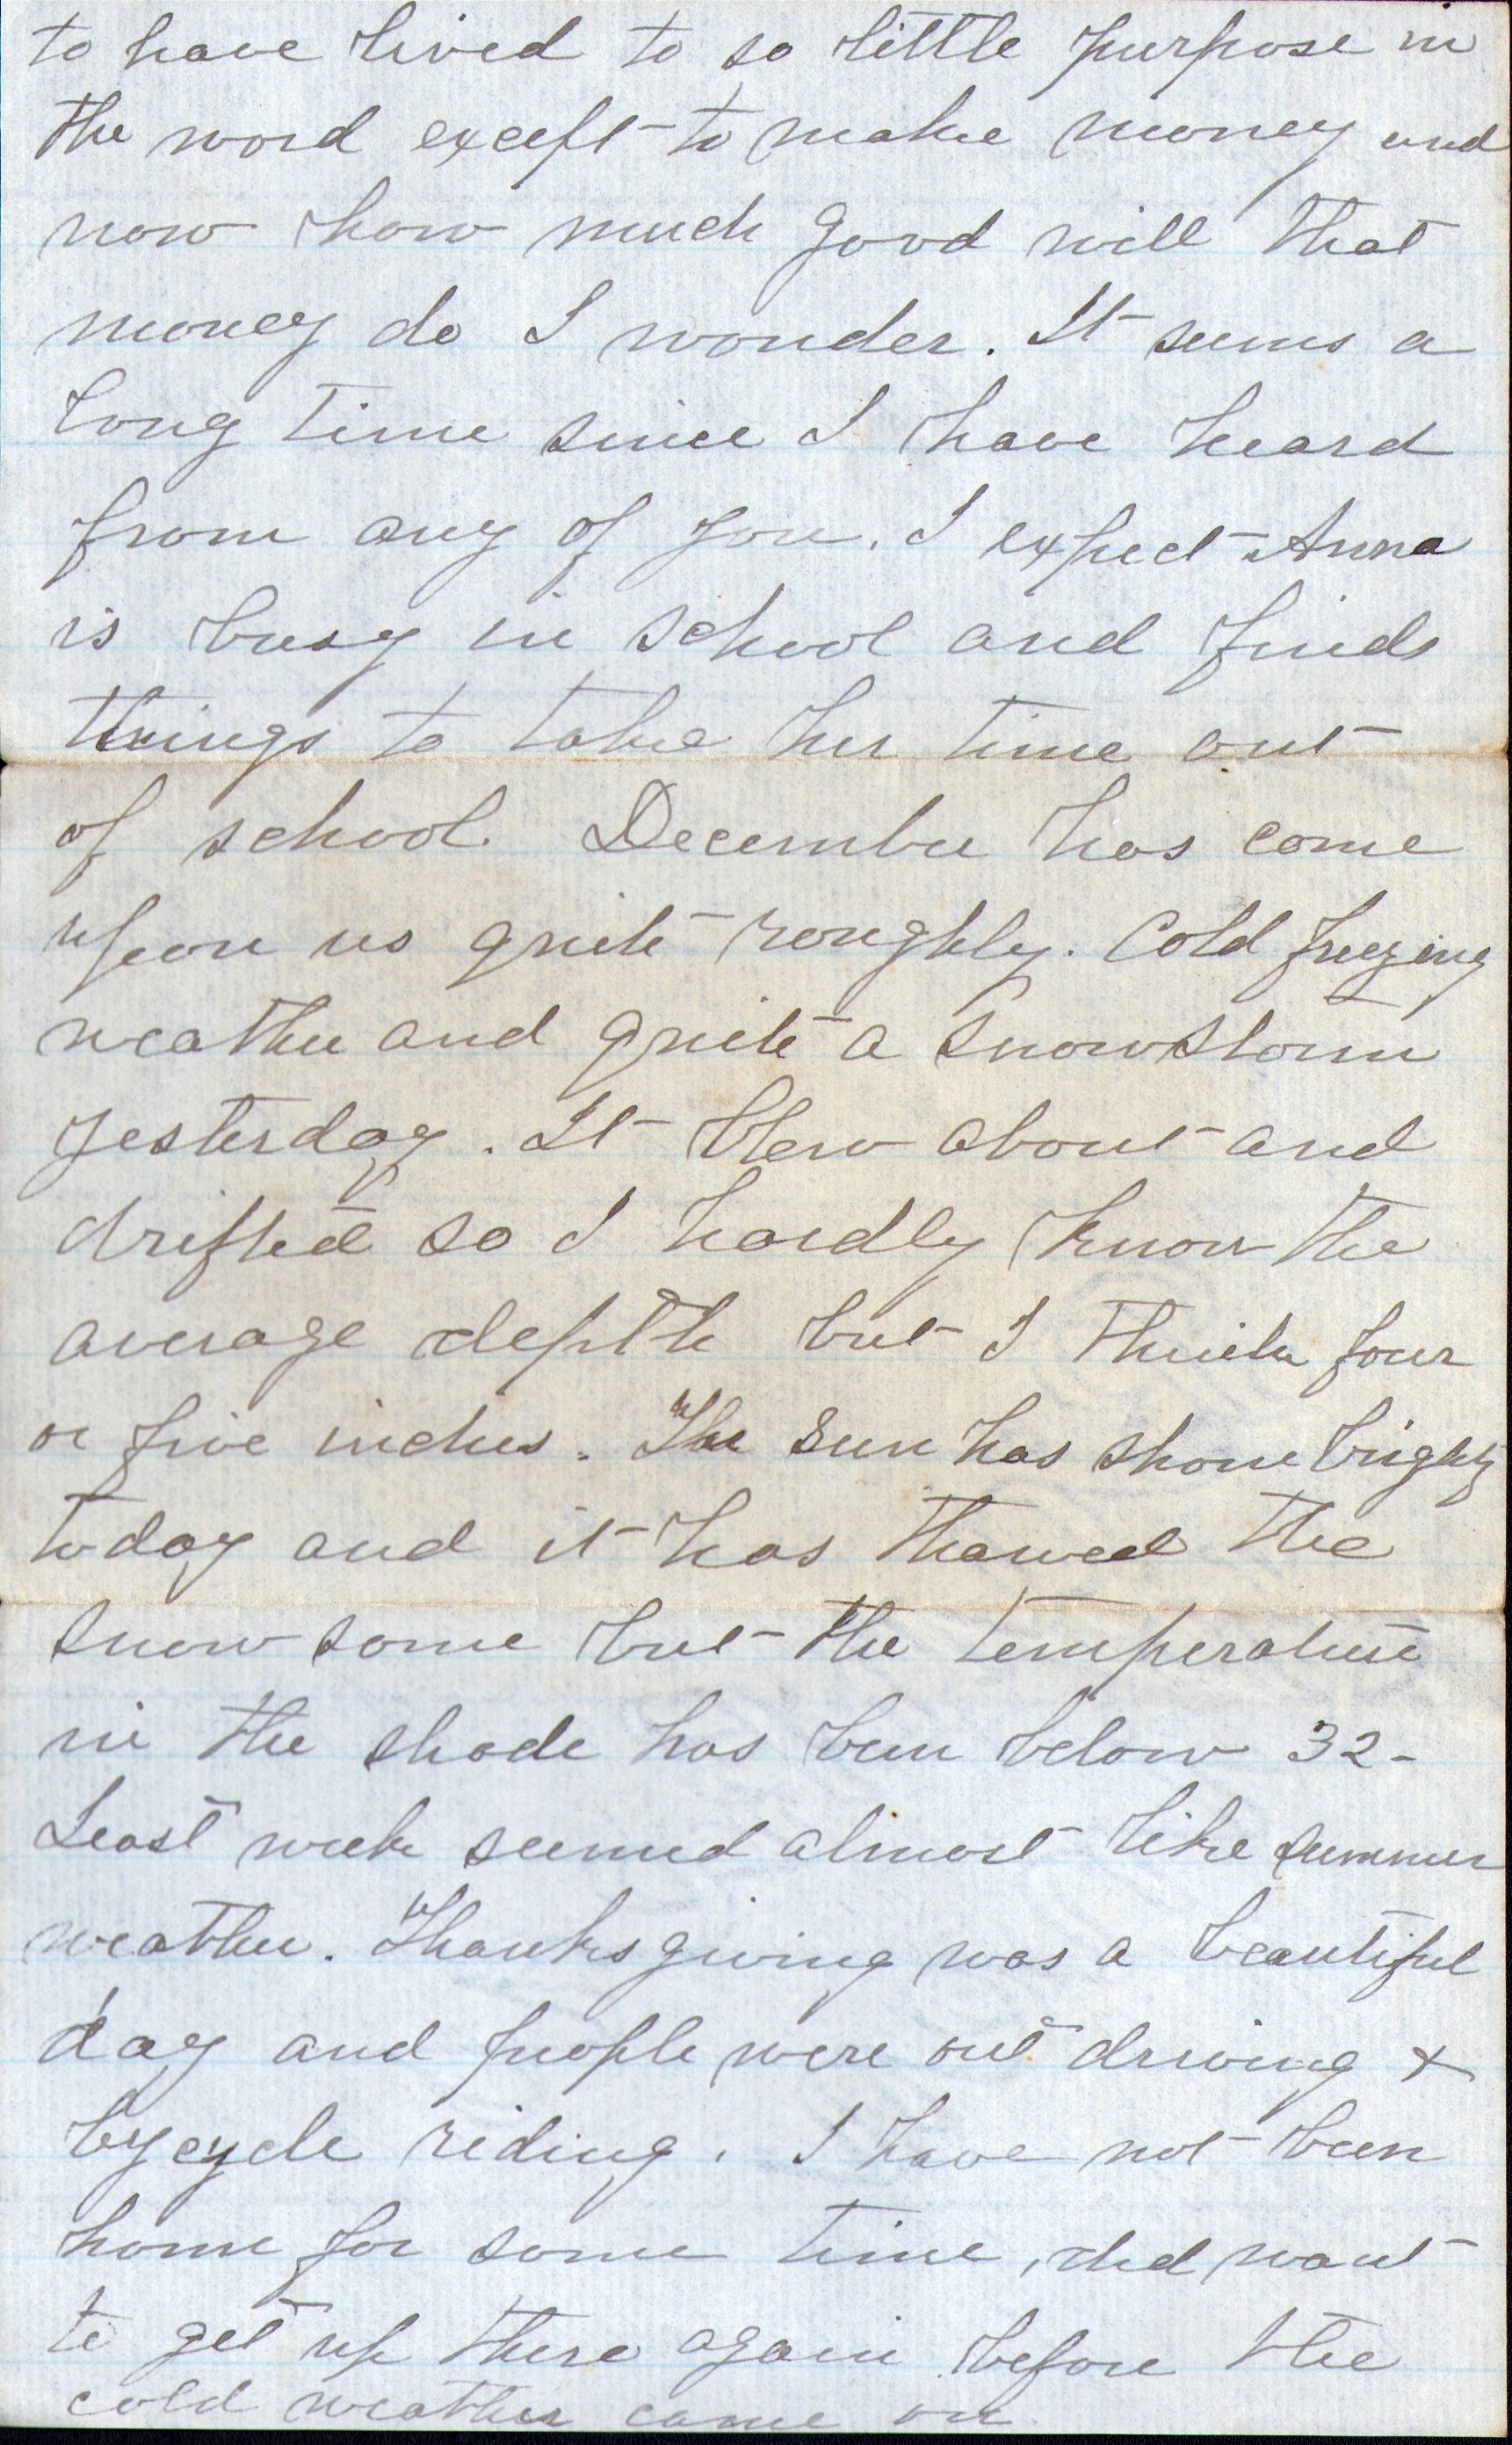 to have lived to so little purpose in
the word except to make money and
now how much good will that
money do I wonder. It seems a
long time since I have heard
from any of you. I expect Anna
is busy in school and finds
things to take her time out
of school. December has come
upon us quite roughly. Cold freezing
weather and quite a snowstorm
yesterday. It blew about and
drifted so I hardly know the
average depth but I think four
or five inches. The sun has shone brightly
today and it has thawed the
snow some but the temperature
in the shade has been below 32-
Last week seemed almost like summer
weather. Thanksgiving was a beautiful
day and people were out driving +
bycycle riding. I have not been
home for some time, did want
to get up there again before the
cold weather came on.